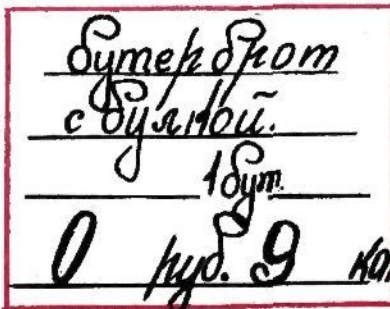 бутерброт
с булкой.
1 бут.
0 руб. 9 коп